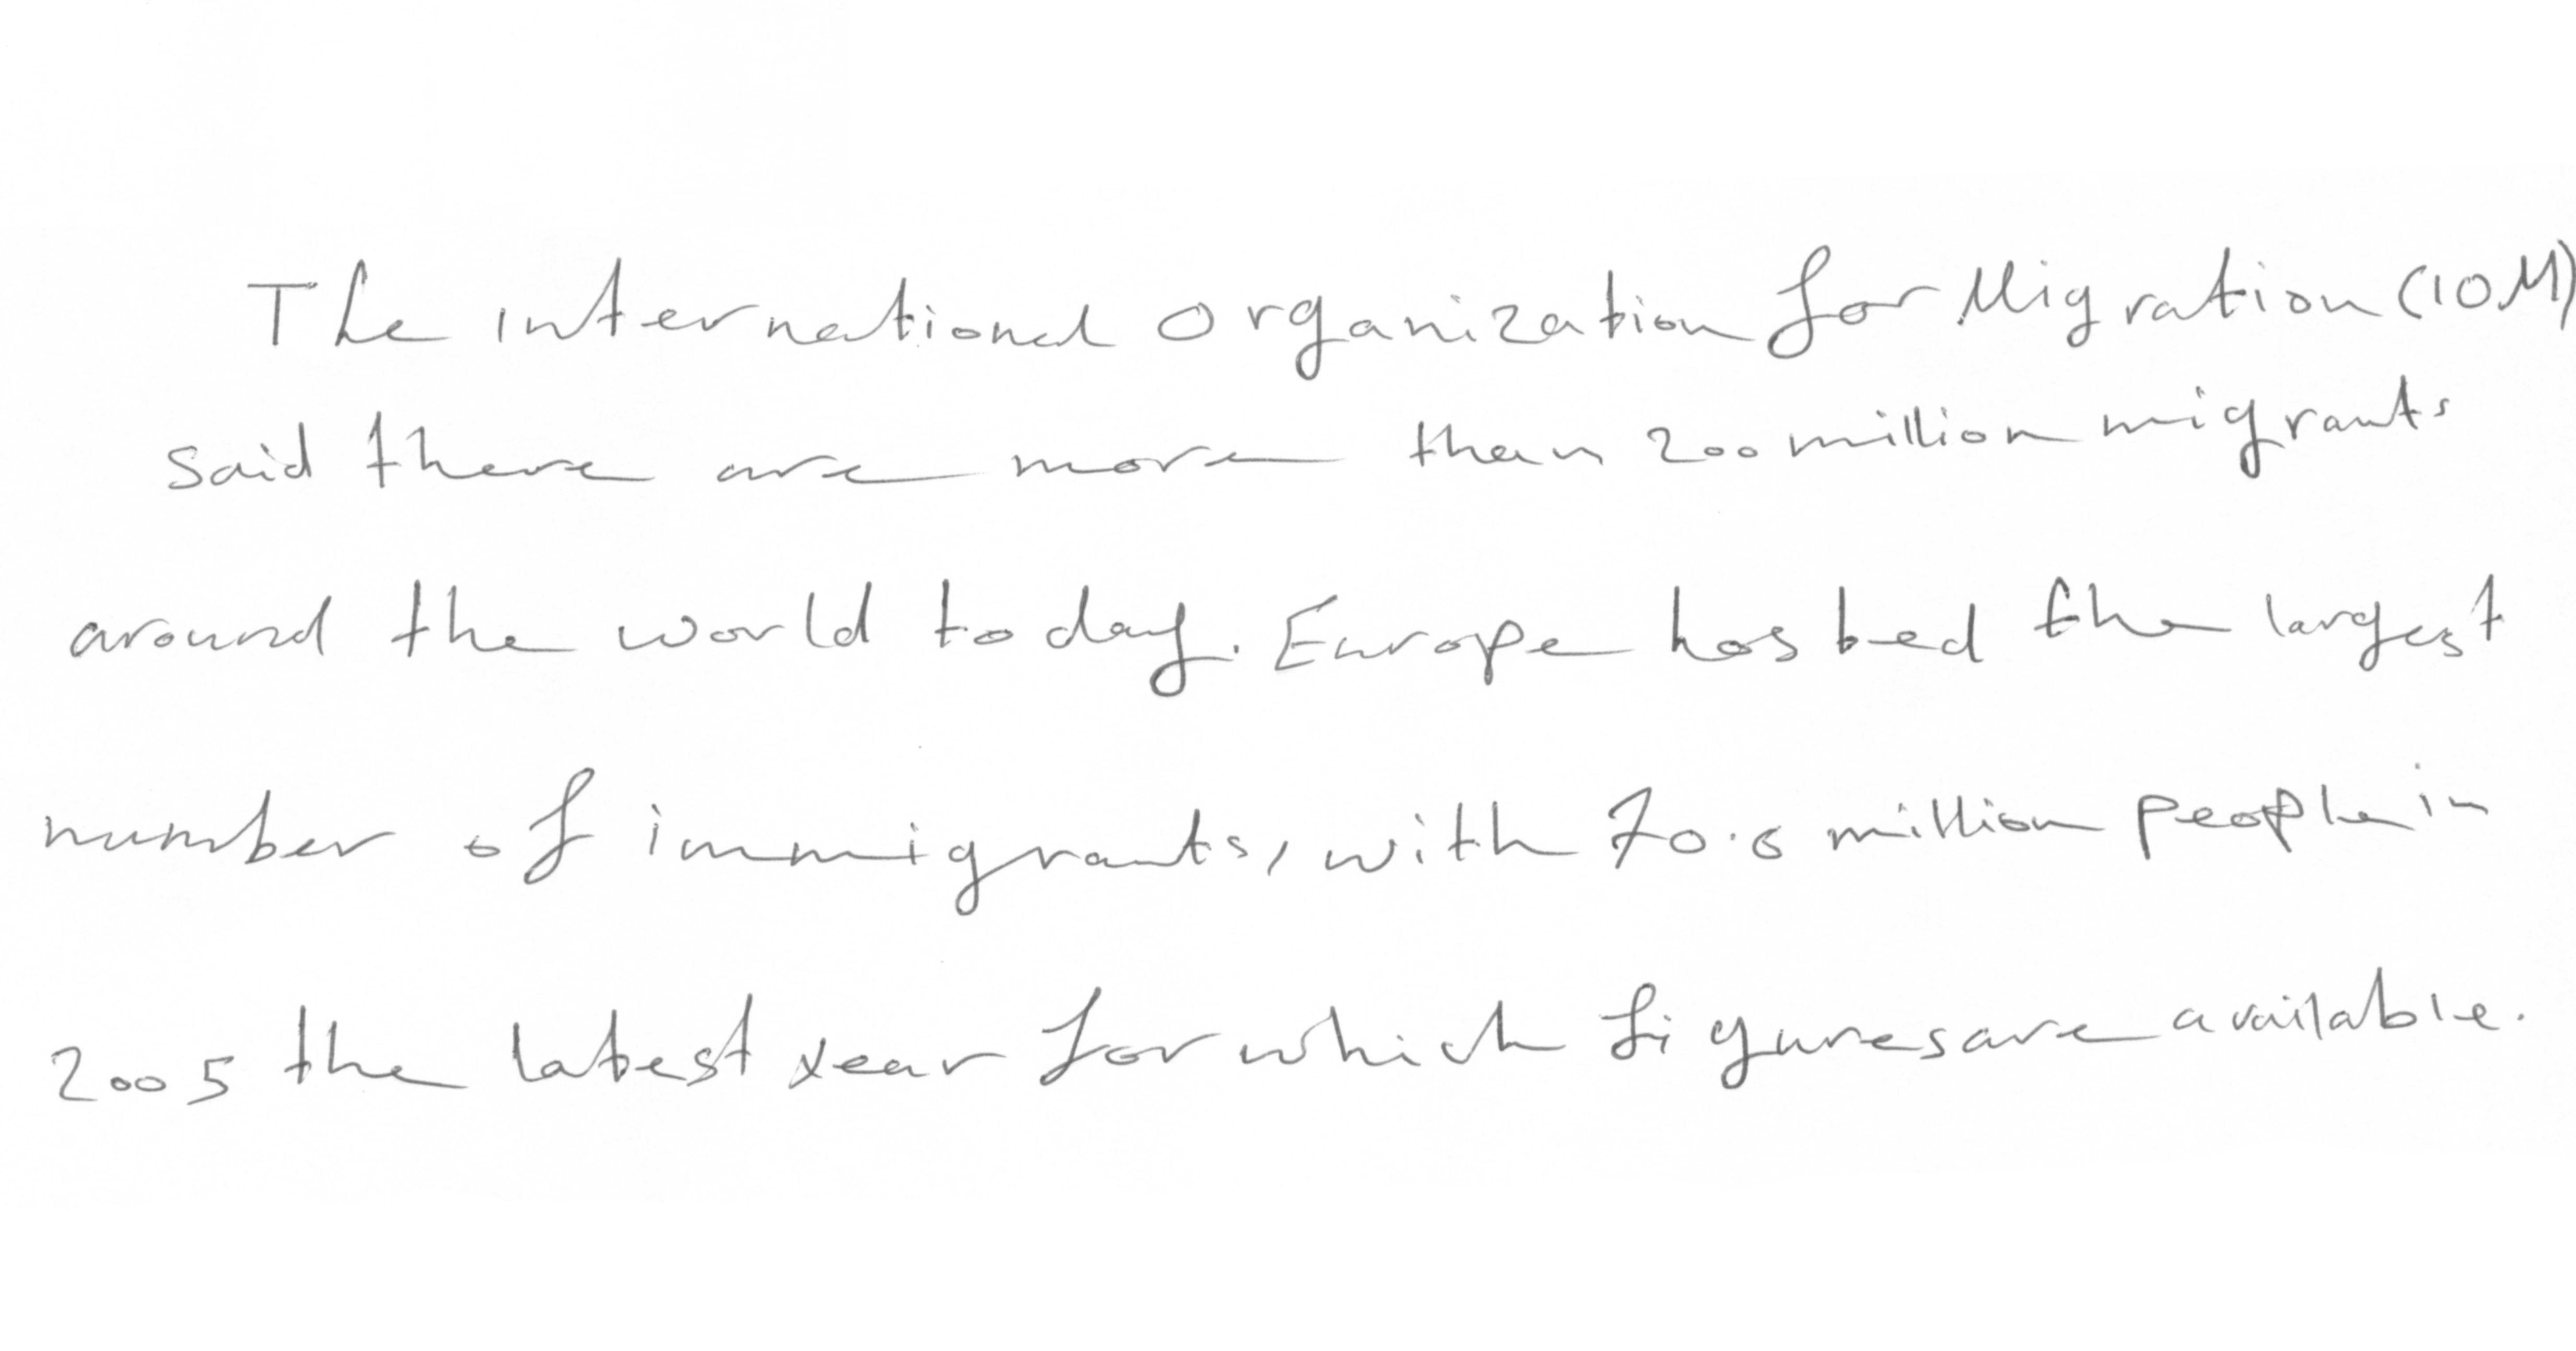 The international organization for Migration (IOM)
said there are more than 200 million migrants
around the world today. Europe has had the largest
number of immigrants, with 70.6 million people in
2005 the latest year for which figures are available.